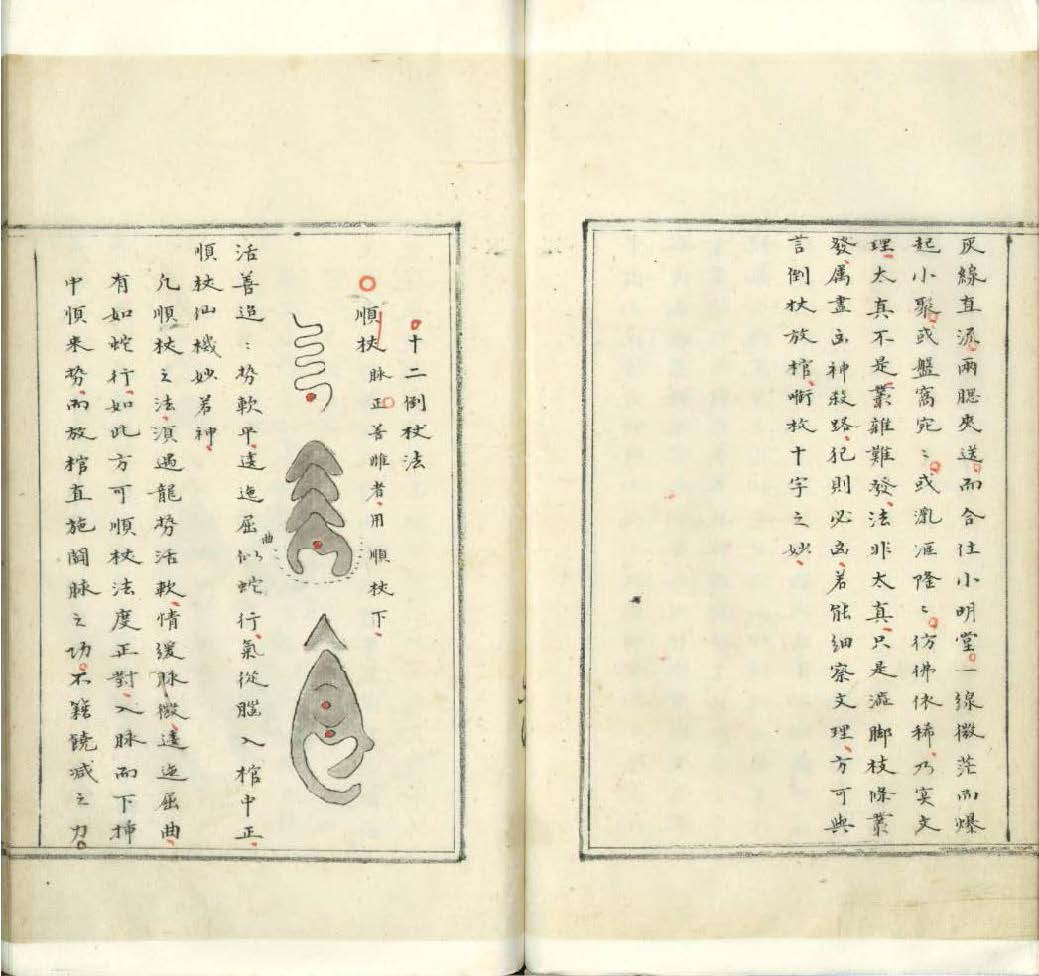 灰線直流兩腮夾送而合住小明堂一線微茫而爆
起小聚或盤窩宛〻或淊滙隆〻彷彿依稀乃穴文
理太真不是叢雜難發法非太真只是漏脚枝條叢
發属盡凶神殺路犯則必凶若能細察文理方可與
言倒杖放棺啣枚十字之妙
十二倒杖法
順杖 脉正善唯者用順杖下
曲
活善迢〻勢軟平逶迤屈似蛇行氣從腦入棺中正
順杖仙機妙若神
凡順杖之法湏遇龍勢活軟情緩脉微逶迤屈曲
有如蛇行如此方可順杖法度正對入脉而下揷
中順来勢而放棺直施闘脉之功不籍饒减之力